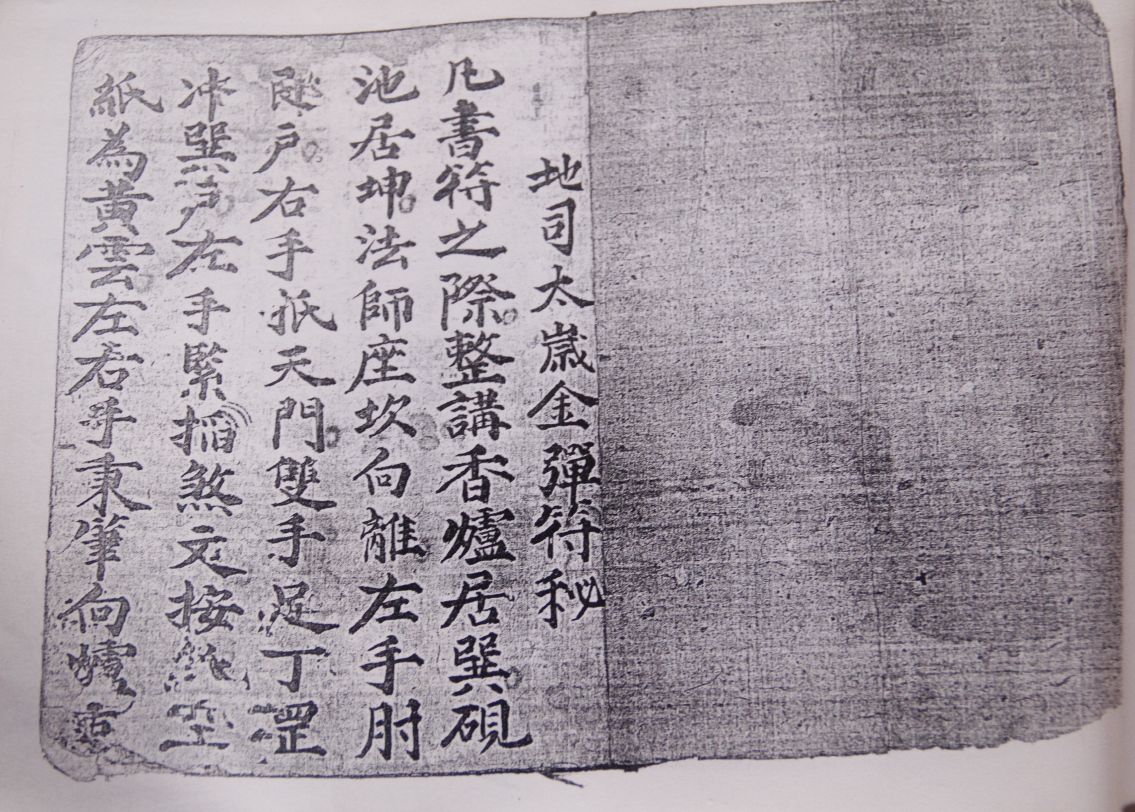 地司太歲金彈符秘
凡書符之際整講香爐居巽硯
池居坤法師座坎向離左手肘
戶右手抵天門雙手足丁罡
冲巽戶左手緊掐煞文按紙
紙為黃雲左右手秉筆向爐